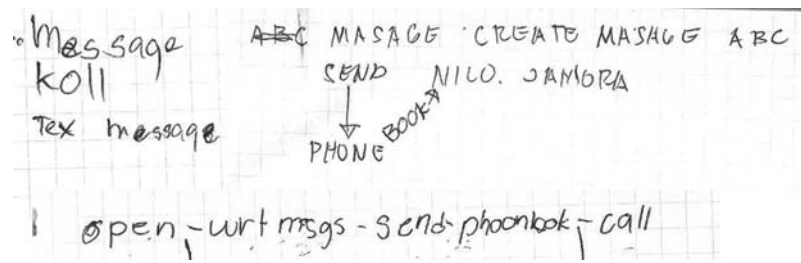 Message
Koll
Tex message
ABC MASAGE CREATE MASAGE ABC
SEND NILO. JAMORA
PHONE BOOK
1 open-wrt msgs-send-phoonbook-call